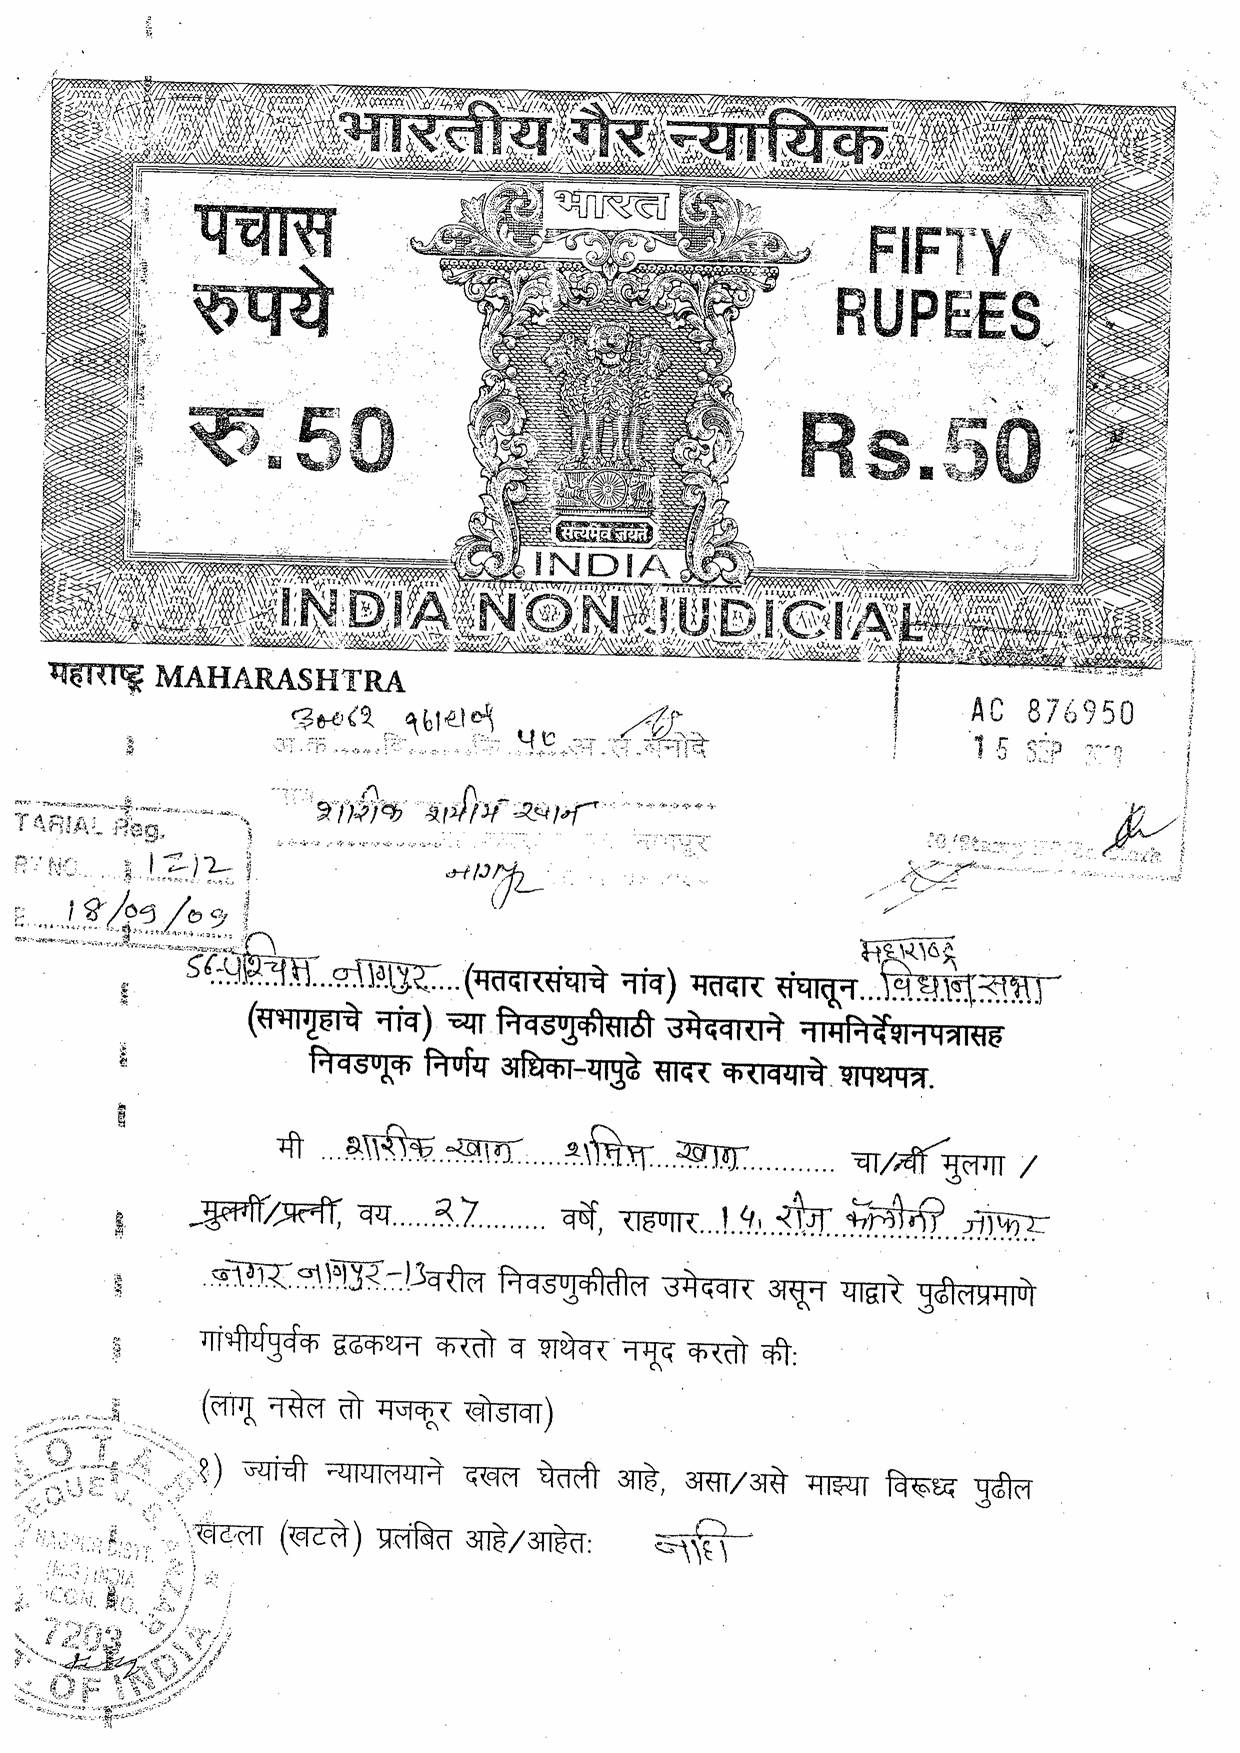 भारतीय गैर न्यायिक
भारत
पचास
रुपये
FIFTY
RUPEES
रु.50
Rs.50
सत्यमेव जयते
INDIA
INDIA NON JUDICIAL
महाराष्ट्र MAHARASHTRA
AC 876950
15 SEP
शारीक शमीम खान
नागपूर
नागपूर
TARIAL Reg.
RY NO. 1212
18/09/09
महाराष्ट्र
56-पश्चिम नागपुर (मतदारसंघाचे नांव) मतदार संघातून विधान सभा
(सभागृहाचे नांव) च्या निवडणुकीसाठी उमेदवाराने नामनिर्देशनपत्रासह
निवडणूक निर्णय अधिका-यापुढे सादर करावयाचे शपथपत्र.
मी शारीक खान शमिम खान चा/ची मुलगा /
मुलगी/पत्नी, वय 27 वर्षे, राहणार 14, रोज कॉलोनी जाफर
नगर नागपुर-13 वरील निवडणुकीतील उमेदवार असून याद्वारे पुढीलप्रमाणे
गांभीर्यपुर्वक द्वढकथन करतो व शथेवर नमूद करतो की:
(लागू नसेल तो मजकूर खोडावा)
१) ज्यांची न्यायालयाने दखल घेतली आहे, असा/असे माझ्या विरूध्द पुढील
खटला (खटले) प्रलंबित आहे/आहेत: नाही
NAGPUR DISTT.
(M.S) INDIA
7203
OF INDIA